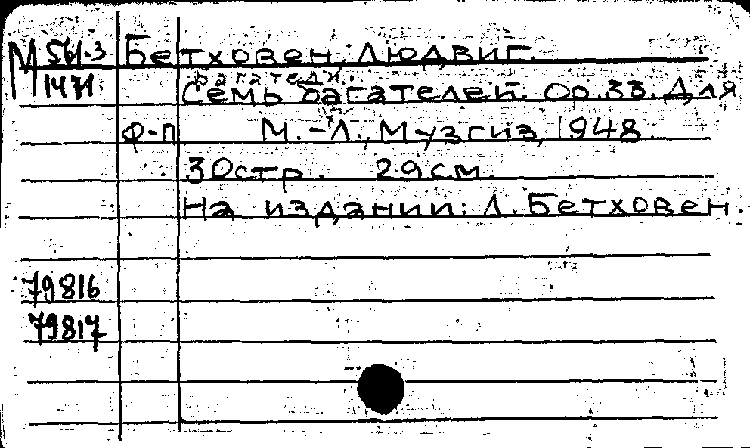 М 561.3 Бетховен, Людвиг.
багатели.
1471 Семь багателей. Op.33. Для
ф-п М.-Л., Музгиз, 1948.
30стр. 29см.
На издании: Л. Бетховен.
79816
79817